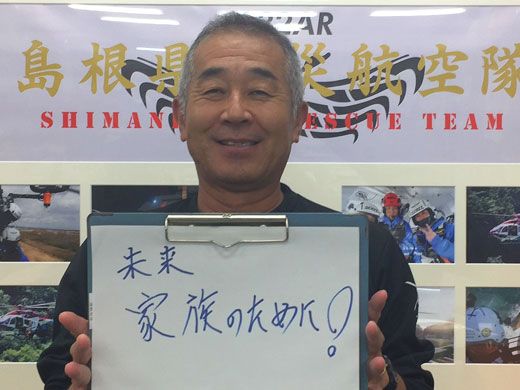 島根県災航空隊
SHIMAN ESCUE TEAM
未来
家族のために!